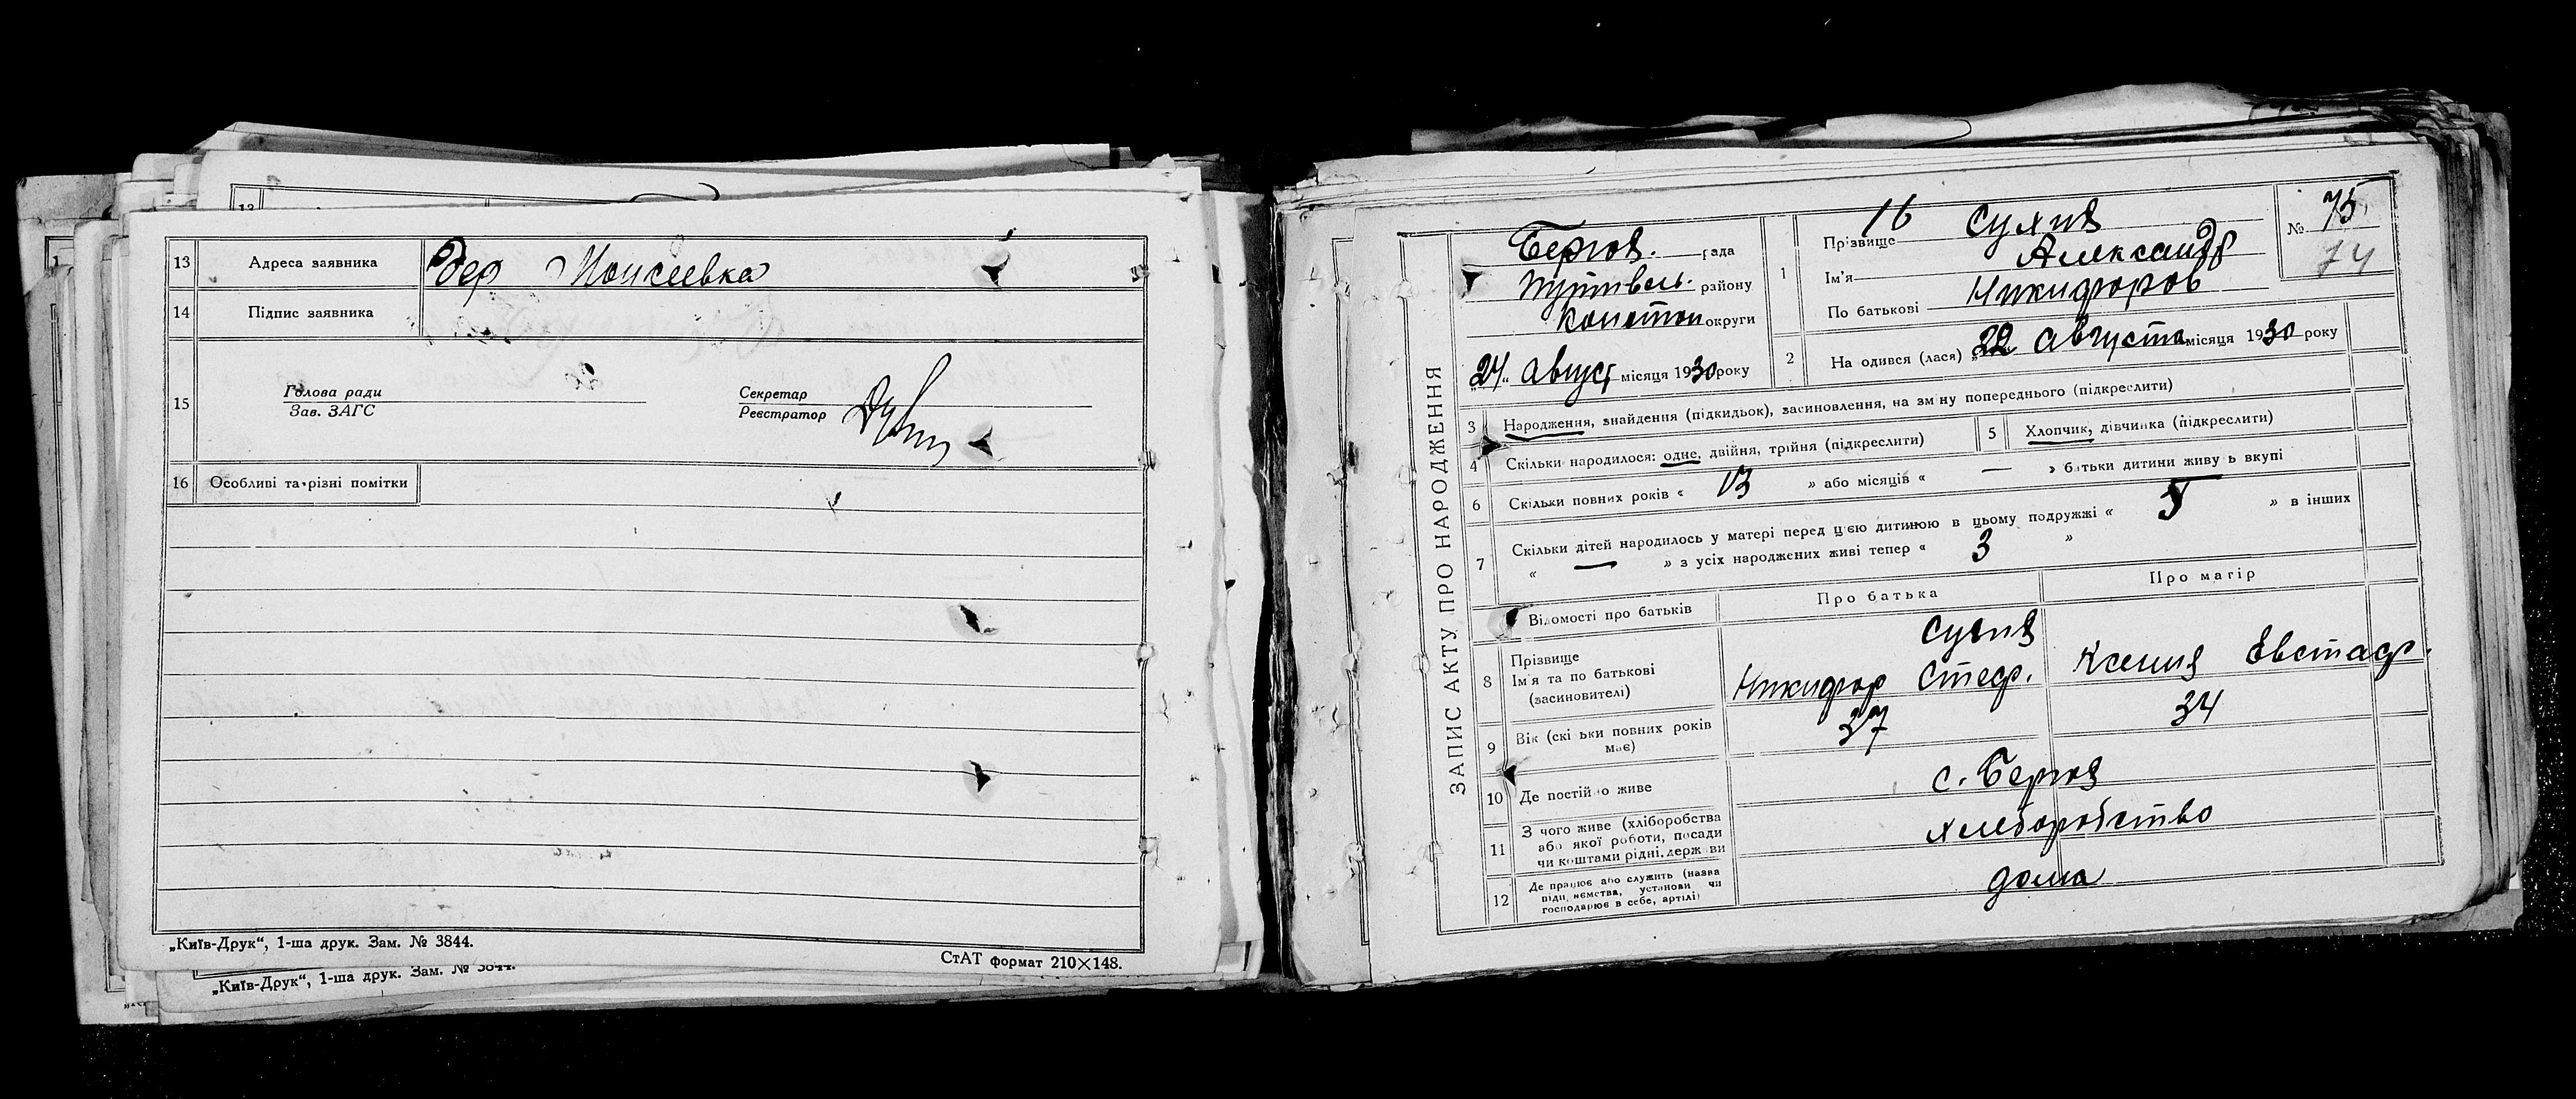 13 Адреса заявника дер Моисеевка
14 Підпис заявника
15 Голова ради Секретар
Зав. ЗАГС Реєстратор
16 Особливі та різні помітки
„Київ-Друк“, 1-ша друк. Зам. № 3844.
СтАТ формат 210×148.
„Київ-Друк“, 1-ша друк. Зам. № 3844.
ЗАПИС АКТУ ПРО НАРОДЖЕННЯ
рада
Путивль. району
Конотоп округи
„24“ Август місяця 1930 року
16
№ 75
74
1 Прізвище
Ім'я Александр
По батькові Никифоров
2 На одився (лася) „22 Августа місяця 1930 року
3 Народження, знайдення (підкидьок), засиновлення, на зміну попереднього (підкреслити)
4 Скільки народилося: одне, двійня, трійня (підкреслити)
5 Хлопчик, дівчинка (підкреслити)
6 Скільки повних років « 13 » або місяців « — » батьки дитини живу ь вкупі
7 Скільки дітей народилось у матері перед цією дитиною в цьому подружжі « 5 » в інших
« — » з усіх народжених живі тепер « 3 »
Відомості про батьків Про батька Про матір
8 Прізвище
Ім'я та по батькові Никифор Стеф. Ксения Евстаф.
(засиновителі)
9 Вік (скі ьки повних років 37 34
має)
10 Де постійно живе с.
11 З чого живе (хліборобства хлеборобство
або якої роботи, посади
чи коштами рідні, держ ви
12 Де працює або служить (назва дома
підп иємства, установи чи
господарює в себе, артілі)